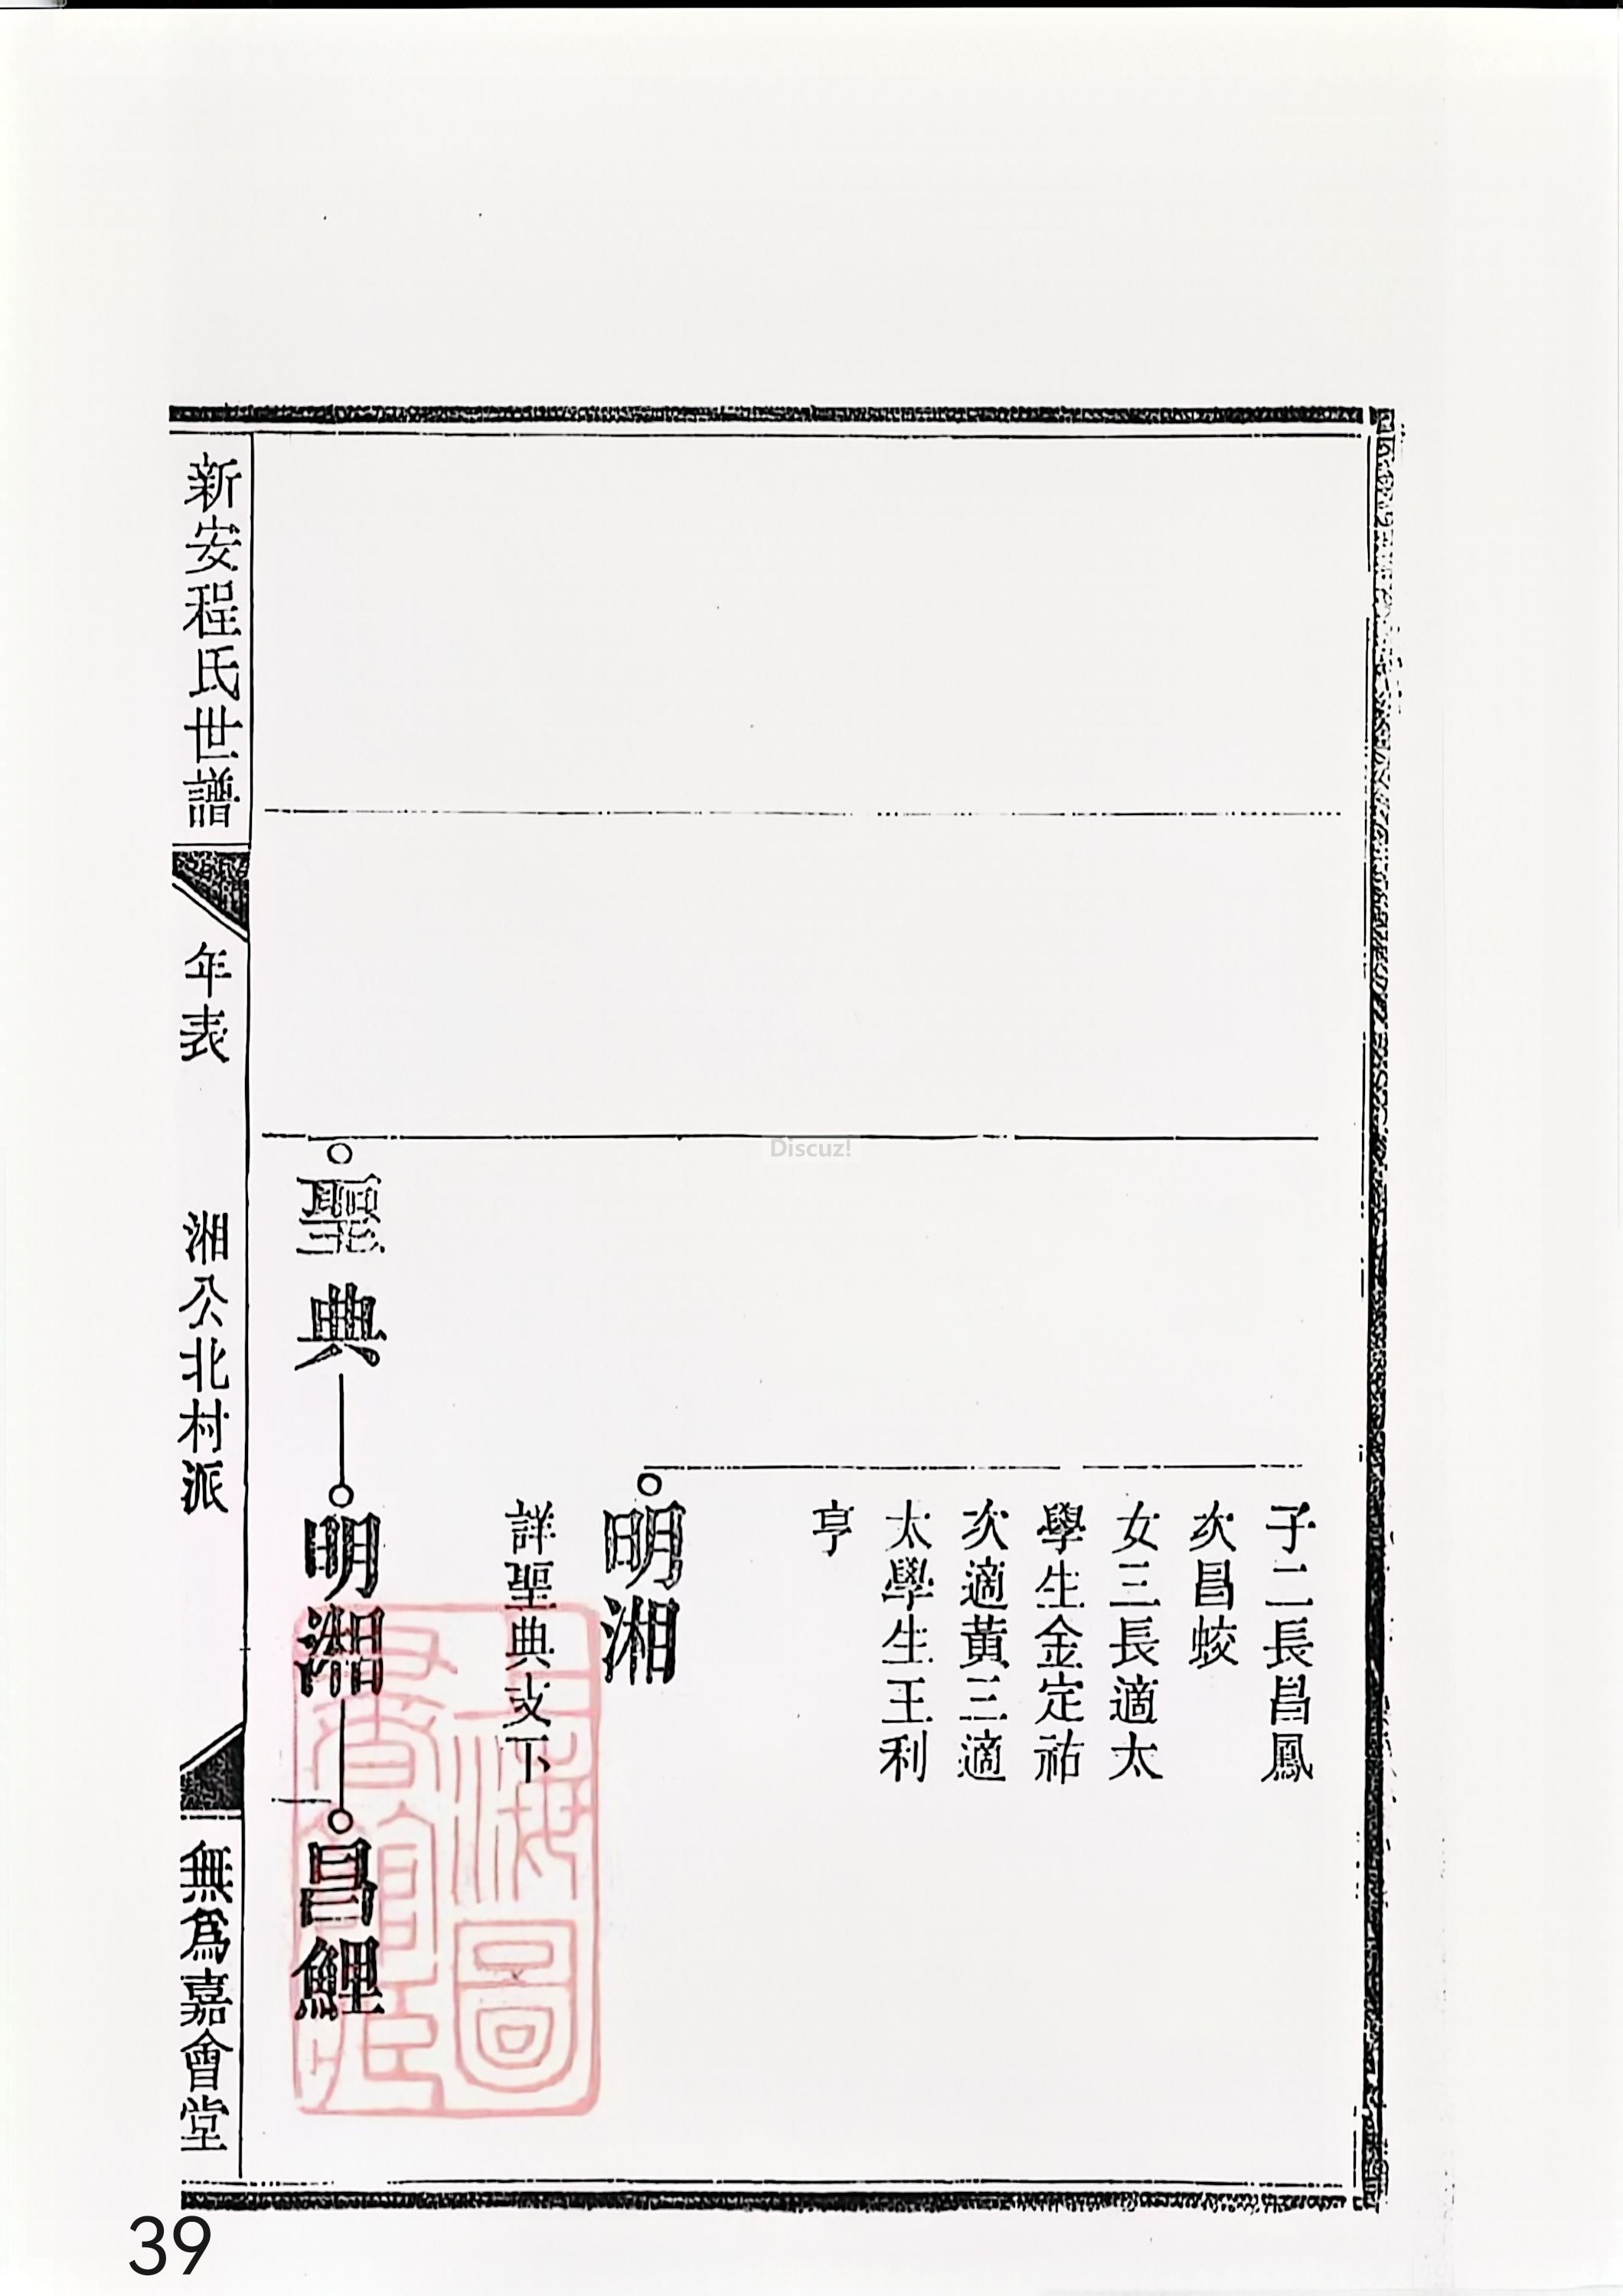 子二長昌鳳
次昌蛟
女三長適太
學生金定祐
次適黃三適
太學生王利
亨
明湘
詳聖典支下
聖典
明湘
昌鯉
新安程氏世譜
年表
湘公北村派
無爲嘉會堂
上海圖
書館臧
Discuz!
39